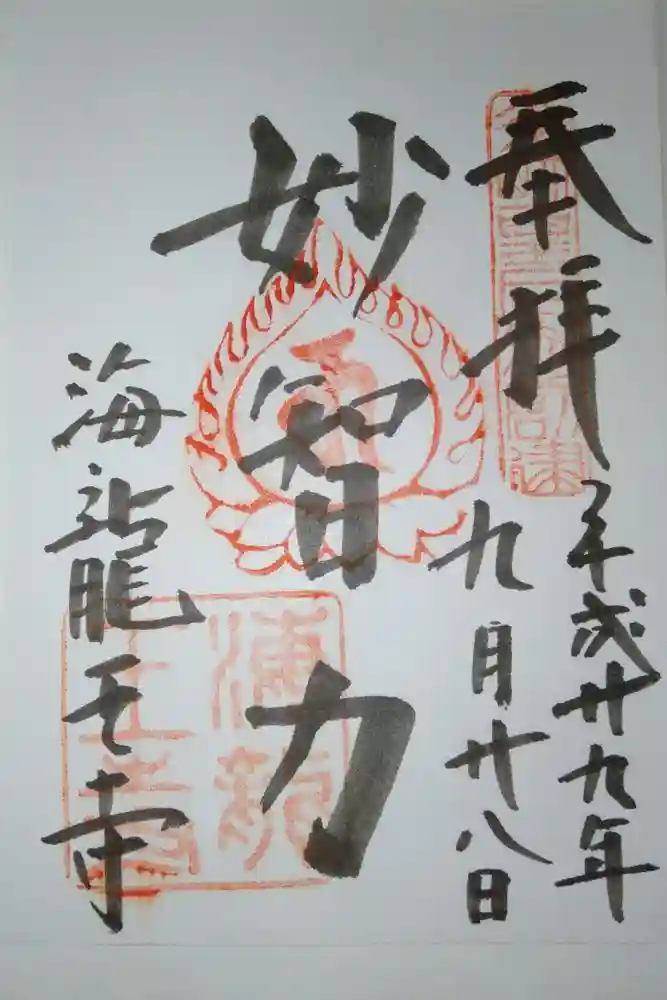 奉拝
平成廿九年
九月廿八日
妙智力
海龍王寺
海龍
王寺